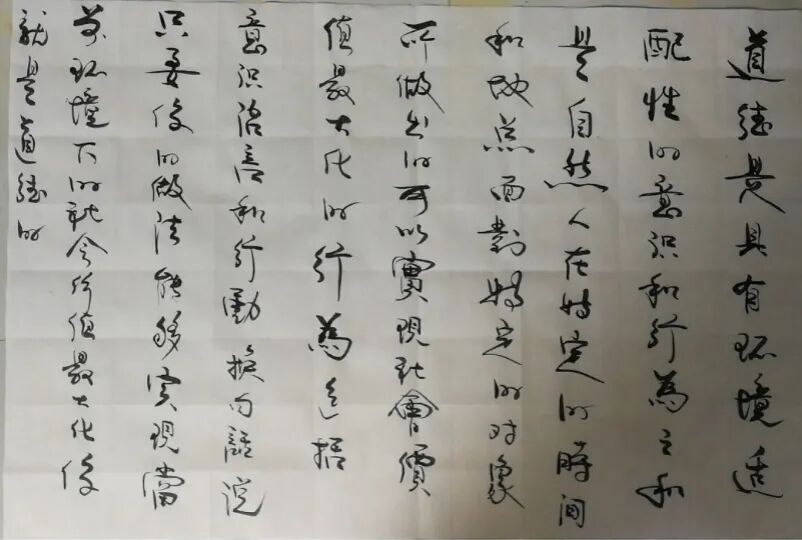 道德是具有环境适
配性的意识和行為之和
是自然人在特定的時间
和地点面對特定的对象
所做出的可以實現社會價
值最大化的行為包括
意识语言和行動换句話说
只要你的做法能够实現當
前环境下的社会价值最大化你
就是道德的